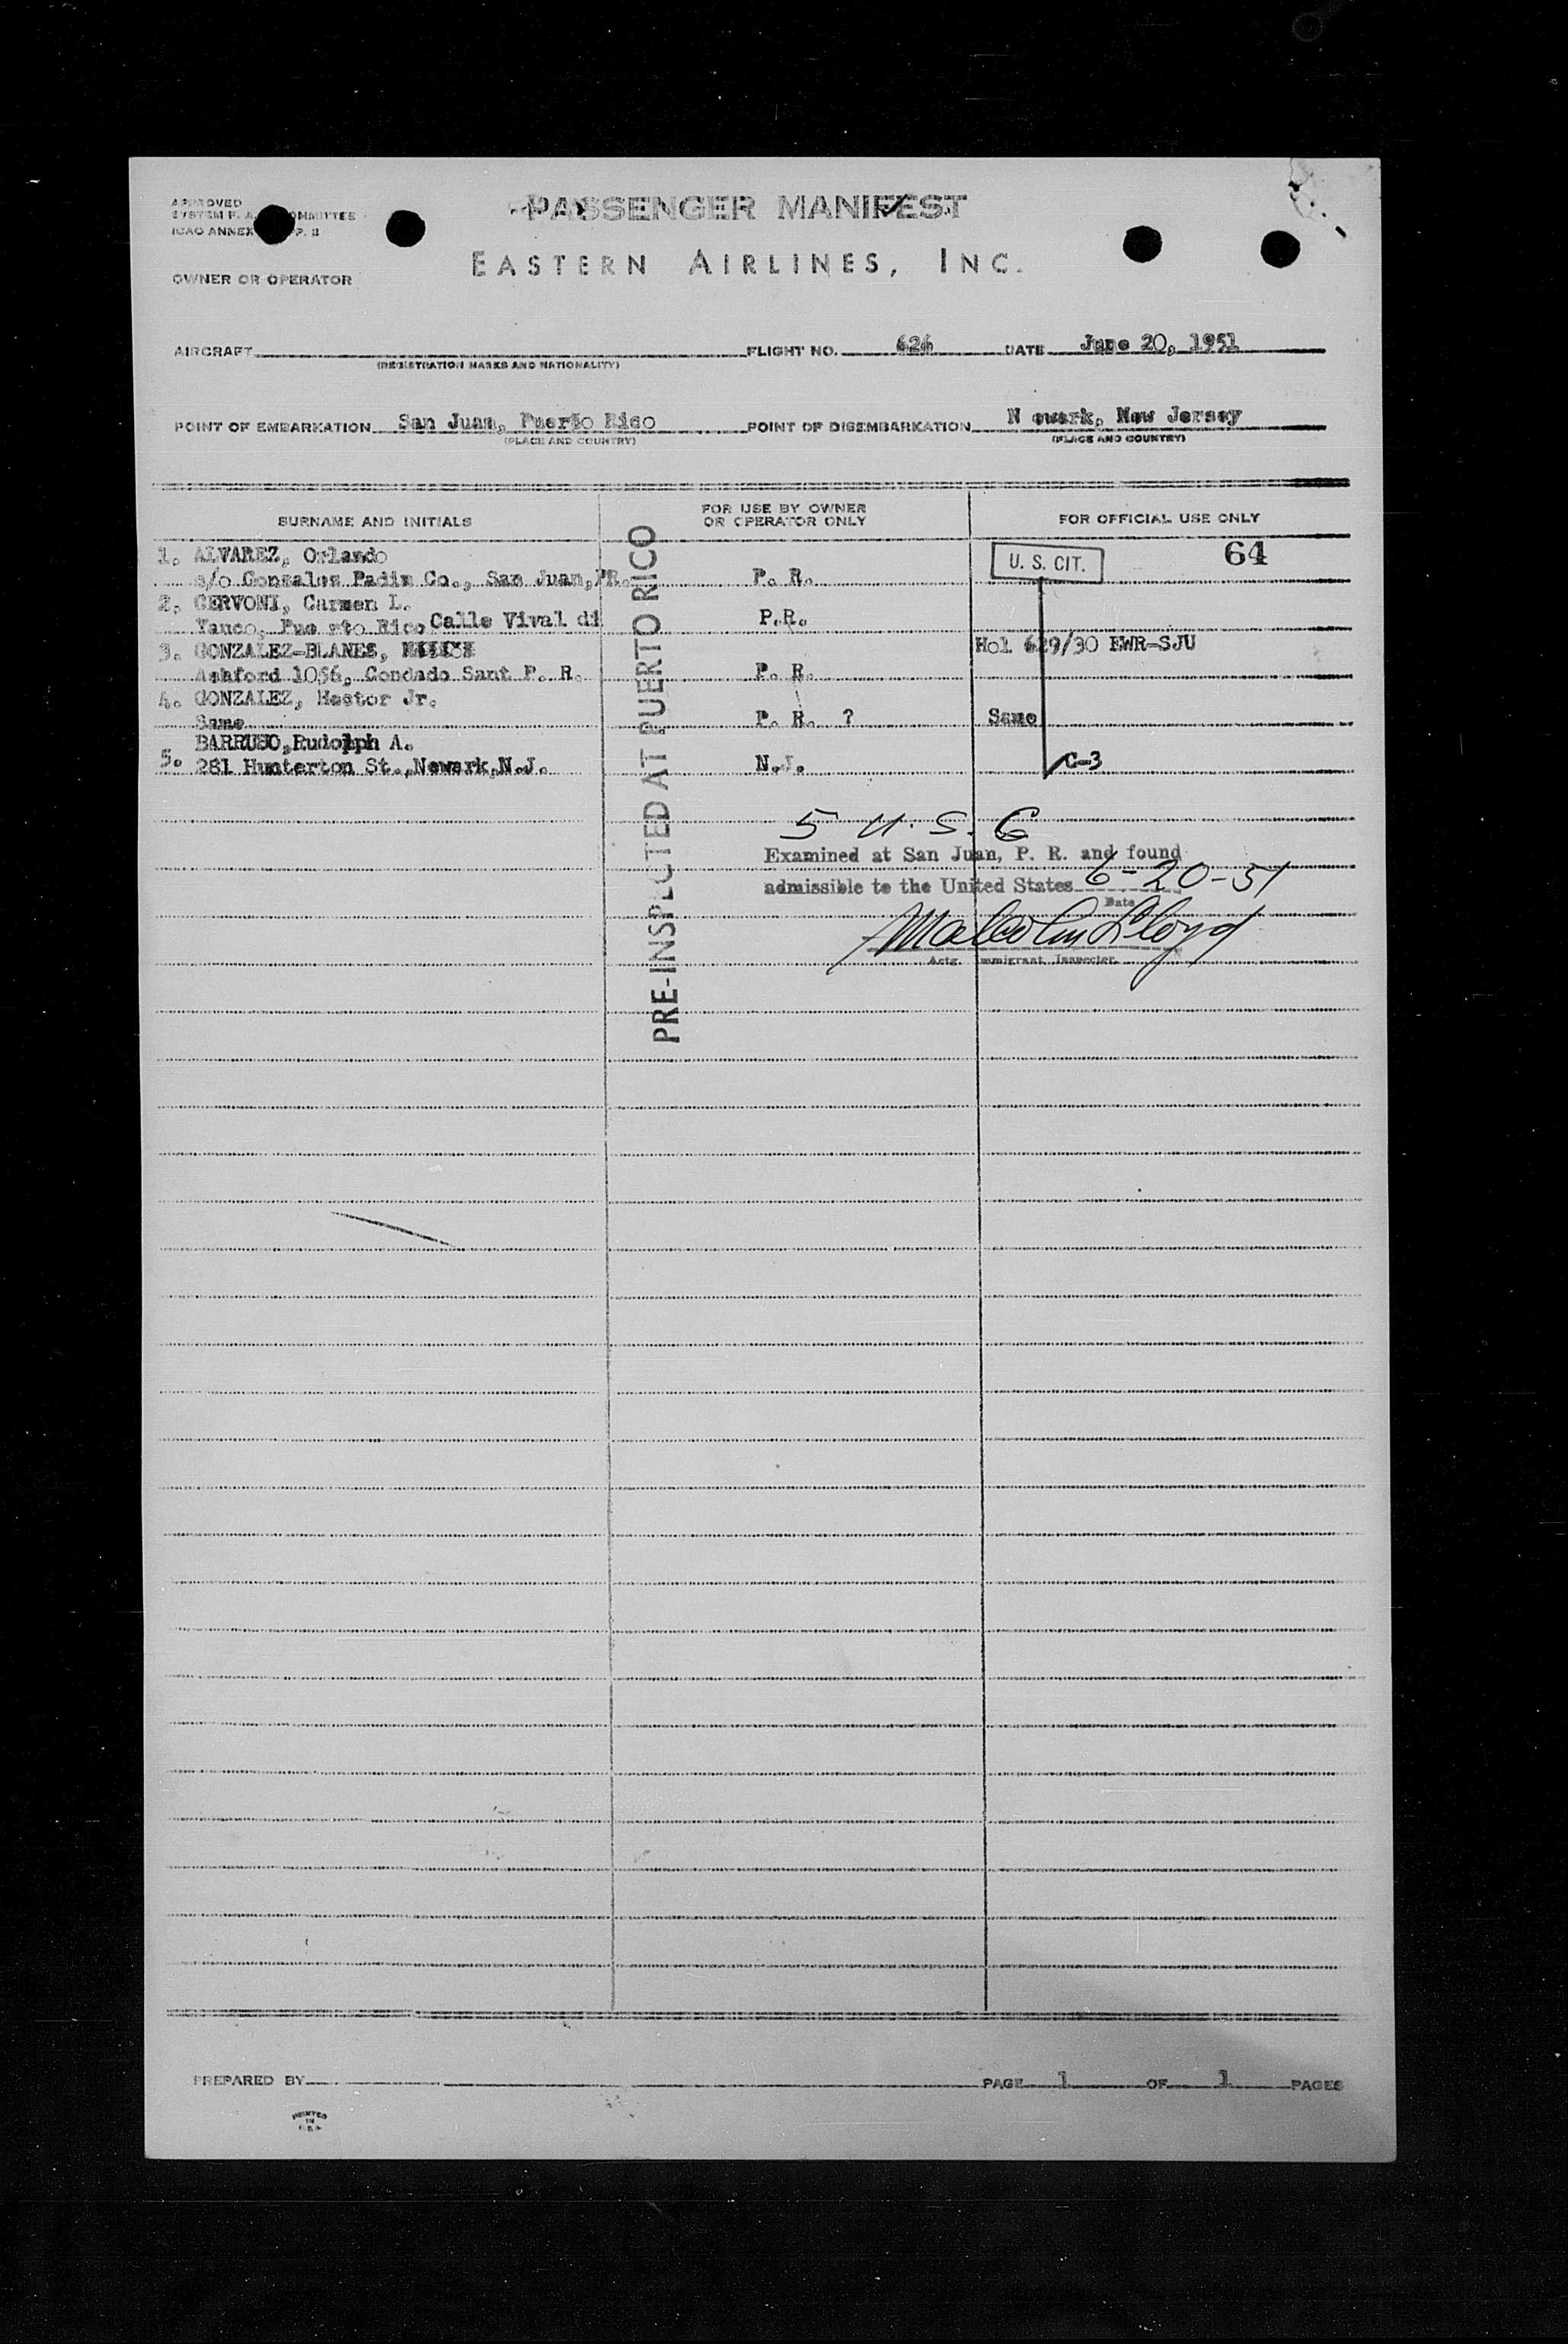 PASSENGER MANIFEST
APPROVED
SYSTEM F. A. COMMITTEE
ICAO ANNEX P. 2
EASTERN AIRLINES, INC.
OWNER OR OPERATOR
AIRCRAFT FLIGHT NO. 626 DATE June 20, 1951
(REGISTRATION MARKS AND NATIONALITY)
POINT OF EMBARKATION San Juan, Puerto Rico POINT OF DISEMBARKATION N ewark, New Jersey
(PLACE AND COUNTRY) (PLACE AND COUNTRY)
SURNAME AND INITIALS FOR USE BY OWNER OR OPERATOR ONLY FOR OFFICIAL USE ONLY
1. ALVAREZ, Orlando U. S. CIT. 64
c/o Gonzalez Padin Co., San Juan,PR. P. R.
2. CERVONI, Carmen L.
Yauco, Pue rto Rico Calle Vival di P.R.
3. GONZALEZ-BLANES, Hol 629/30 EWR-SJU
Ashford 1056, Condado Sant P. R. P. R.
4. GONZALEZ, Hestor Jr.
Same P. R. ? Same
BARRUSO, Rudolph A.
5. 281 Hunterton St., Newark,N.J. N.J. C-3
PRE-INSPECTED AT PUERTO RICO
5 U. S. C
Examined at San Juan, P. R. and found
admissible to the United States 6-20-51
Date
Malcolm Lloyd
Actg. Immigrant Inspector
PREPARED BY PAGE 1 OF 1 PAGES
PRINTED
IN
U.S.A.